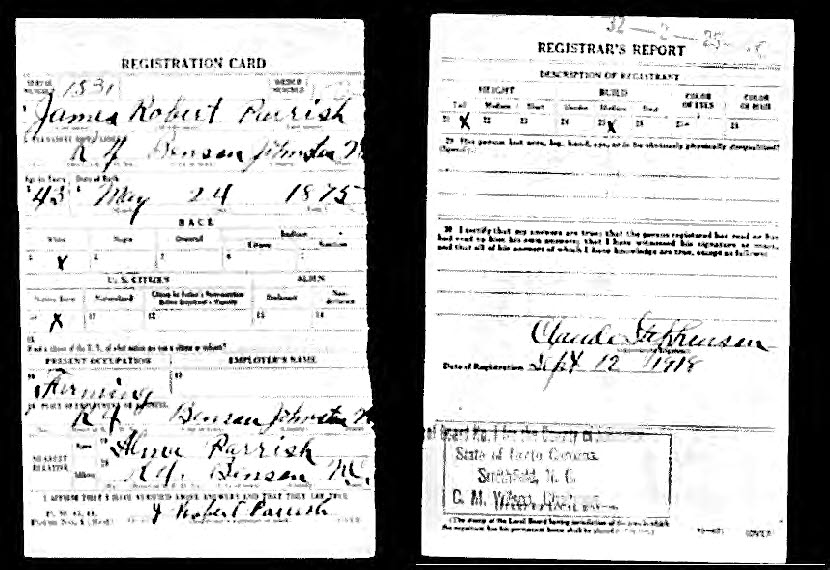 REGISTRATION CARD
SERIAL NUMBER 1531
ORDER NUMBER
James Robert Parrish
Benson Johnston N
Age in Years Date of Birth
43 May 24 1875
RACE
White Negro Oriental Indian
Citizen
X
U. S. CITIZEN ALIEN
Native Born Naturalized Citizen by Father's Naturalization Before Registrant's Majority Declarant Non-declarant
10 X 11 12 13 14
15
If not a citizen of the U. S., of what nation are you a citizen or subject?
PRESENT OCCUPATION EMPLOYER'S NAME
Farming
PLACE OF EMPLOYMENT OR BUSINESS
Benson Johnston N
NEAREST RELATIVE
Name
Parrish
Address
Benson N.C.
I AFFIRM THAT I HAVE VERIFIED ABOVE ANSWERS AND THAT THEY ARE TRUE
P. M. G. O.
Form No. 1 (Red)
J Robert Parrish
REGISTRAR'S REPORT
DESCRIPTION OF REGISTRANT
HEIGHT BUILD COLOR OF EYES COLOR OF HAIR
Tall Medium Short Slender Medium Stout
21 X 22 23 24 25 X 26 27 28
29 Has person lost arm, leg, hand, eye, or is he obviously physically disqualified?
(Specify.)
30 I certify that my answers are true; that the person registered has read or has
had read to him his own answers; that I have witnessed his signature or mark,
and that all of his answers of which I have knowledge are true, except as follows:
Claude Stephenson
Date of Registration Sept 12 1918
Board No. 1 for the County of Johnston
State of North Carolina
Smithfield, N. C.
C. M. Wilson, Chairman
(The stamp of the Local Board having jurisdiction of the area in which
the registrant has his permanent home shall be placed in this box.)
(OVER)